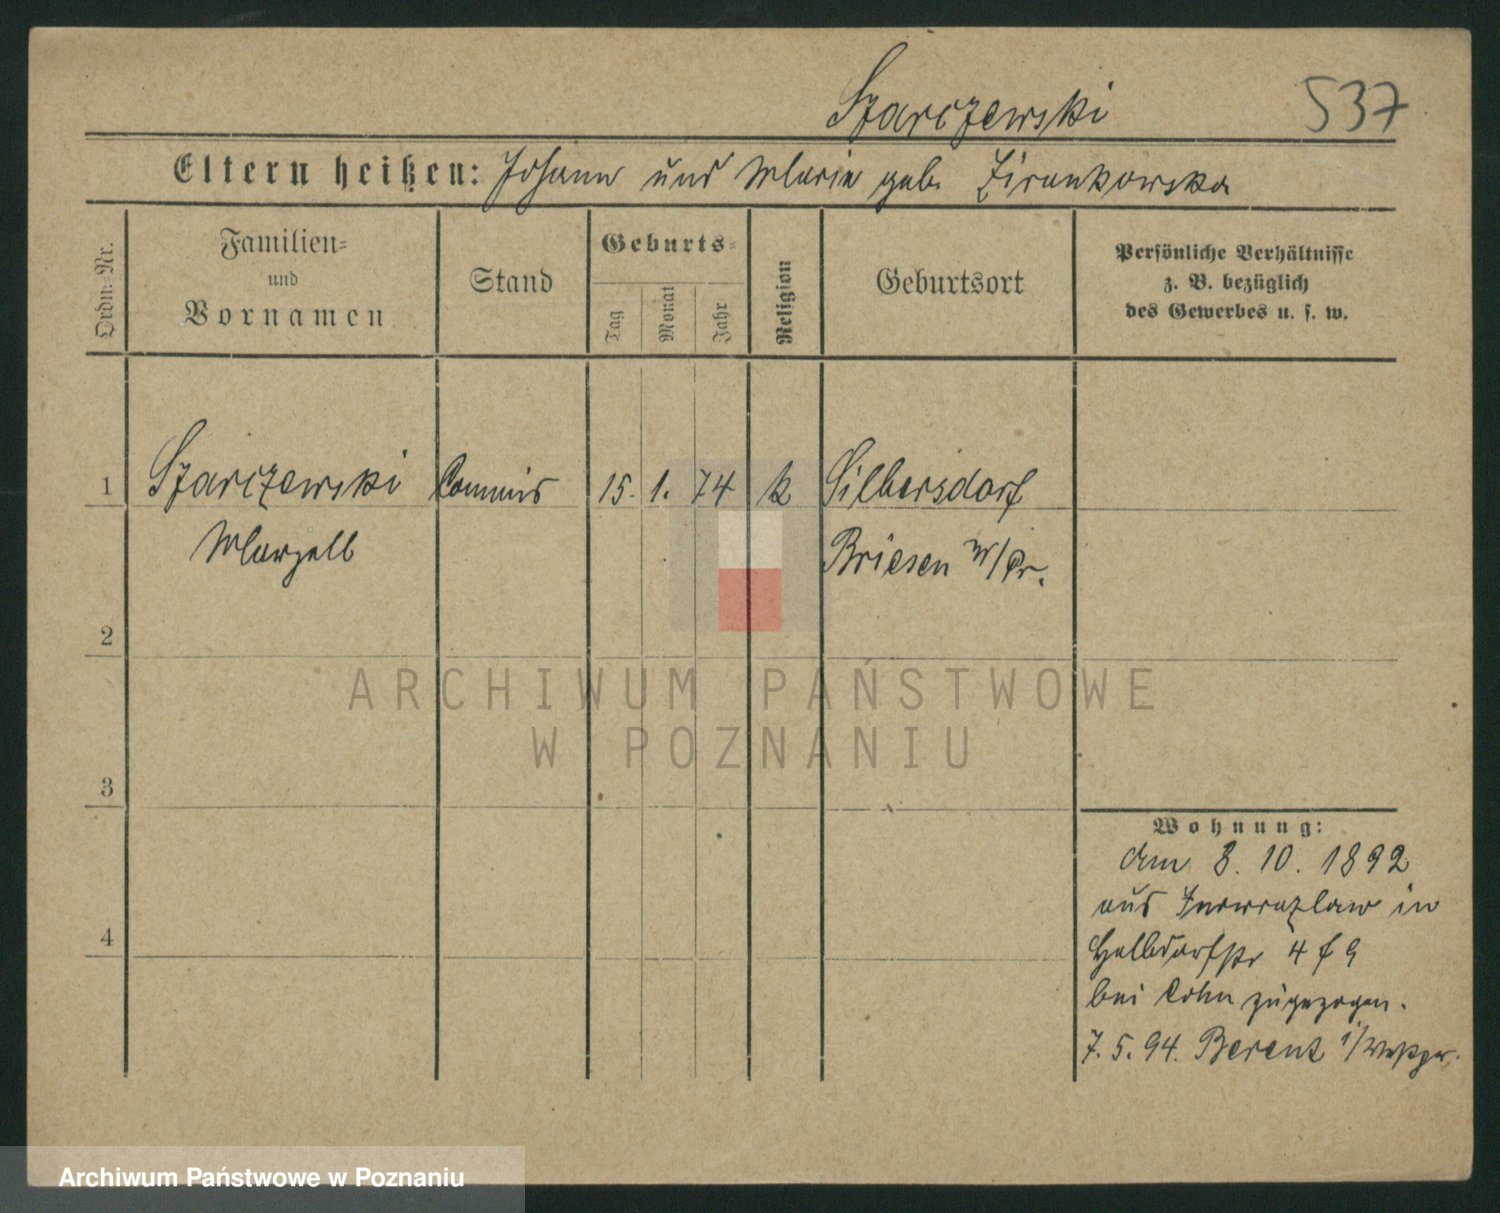 Szarczewski
537
Eltern heißen: Johann und Maria geb. Zirankowska
Ordn.-Nr.
Familien-
und
Vornamen
Stand
Geburts-
Tag
Monat
Jahr
Religion
Geburtsort
Persönliche Verhältnisse
z. B. bezüglich
des Gewerbes u. s. w.
1 Szarczewski Commis 15. 1. 74 k Silbersdorf
Marzell Briesen W/Pr.
2
3
4
Wohnung:
am 8. 10. 1892
aus Inowrazlaw in
Halbdorfstr 4
bei Cohn zugezogen.
7. 5. 94. Berent i/Westpr.
ARCHIWUM PAŃSTWOWE
W POZNANIU
Archiwum Państwowe w Poznaniu